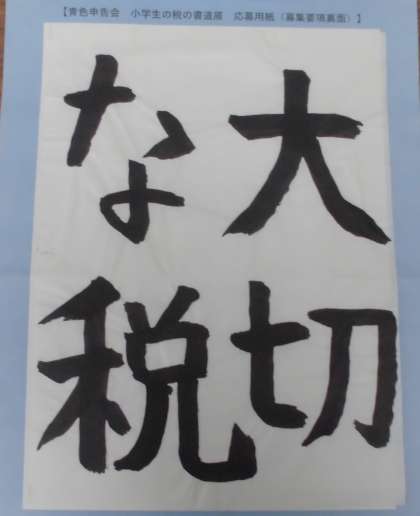 【青色申告会　小学生の税の書道展　応募用紙（募集要項裏面）】
大切
な税